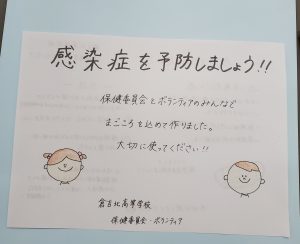 感染症を予防しましょう!!
保健委員会とボランティアのみんなと
まごころを込めて作りました。
大切に使ってください!!
倉吉北高等学校
保健委員会・ボランティア